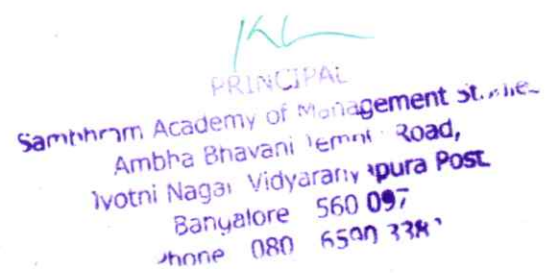 PRINCIPAL
Sambhram Academy of Management
Ambha Bhavani Temple Road,
Nagar Vidyaranyapura Post
Bangalore 560 097
Phone 080